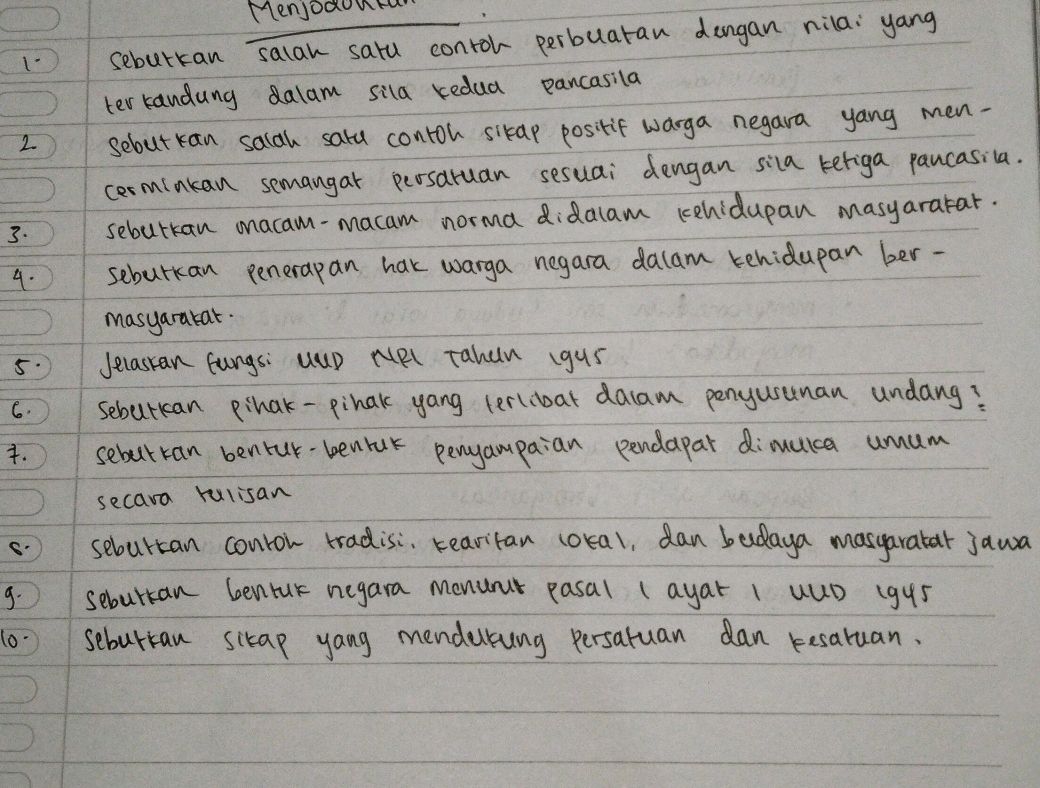 Menjodohkan.
1. Seburkan salah satu contoh perbuatan dengan nilai yang
terkandung dalam sila kedua pancasila
2 Seburkan salah satu contoh sikap positif warga negara yang men-
cerminkan semangat persatuan sesuai dengan sila ketiga pancasila.
3. seburkan macam-macam norma didalam kehidupan masyarakat.
4. seburkan penerapan hak warga negara dalam kehidupan ber-
masyarakat.
5. Jelaskan fungsi UUD NRI Tahun 1945
6. Seburkan pihak-pihak yang terlibat dalam penyusunan undang?
7. seburkan bentuk-bentuk penyampaian pendapat dimuka umum
secara tulisan
8. seburkan contoh tradisi, kearifan lokal, dan budaya masyarakat jawa
9. seburkan bentuk negara menurut pasal 1 ayat 1 UUD 1945
10. seburkan sikap yang mendukung persatuan dan kesatuan.